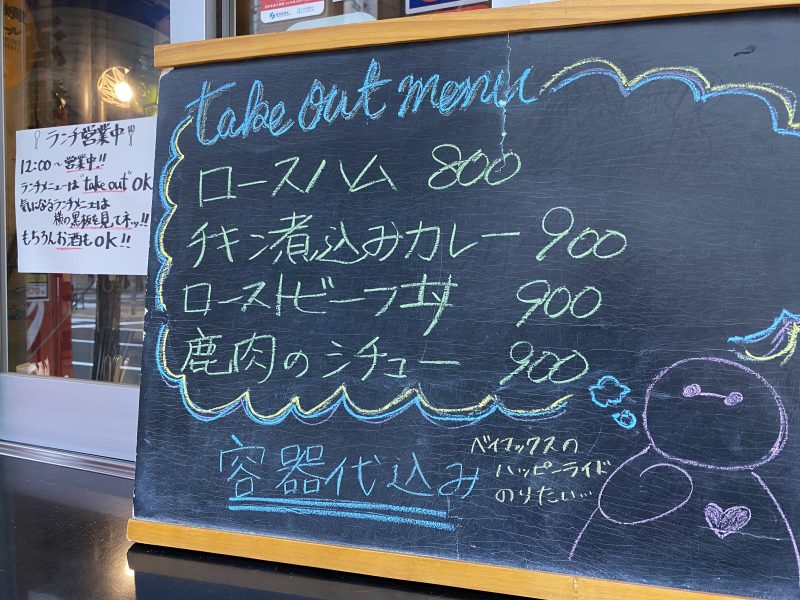 ランチ営業中
12:00～営業中!!
ランチメニューは "take out" OK
気になるランチメニューは
横の黒板を見てネッ!!
もちろんお酒もOK!!
take out menu
ロースハム 800
チキン煮込みカレー 900
ローストビーフ丼 900
鹿肉のシチュー 900
容器代込み
ベイマックスの
ハッピーライド
のりたい…